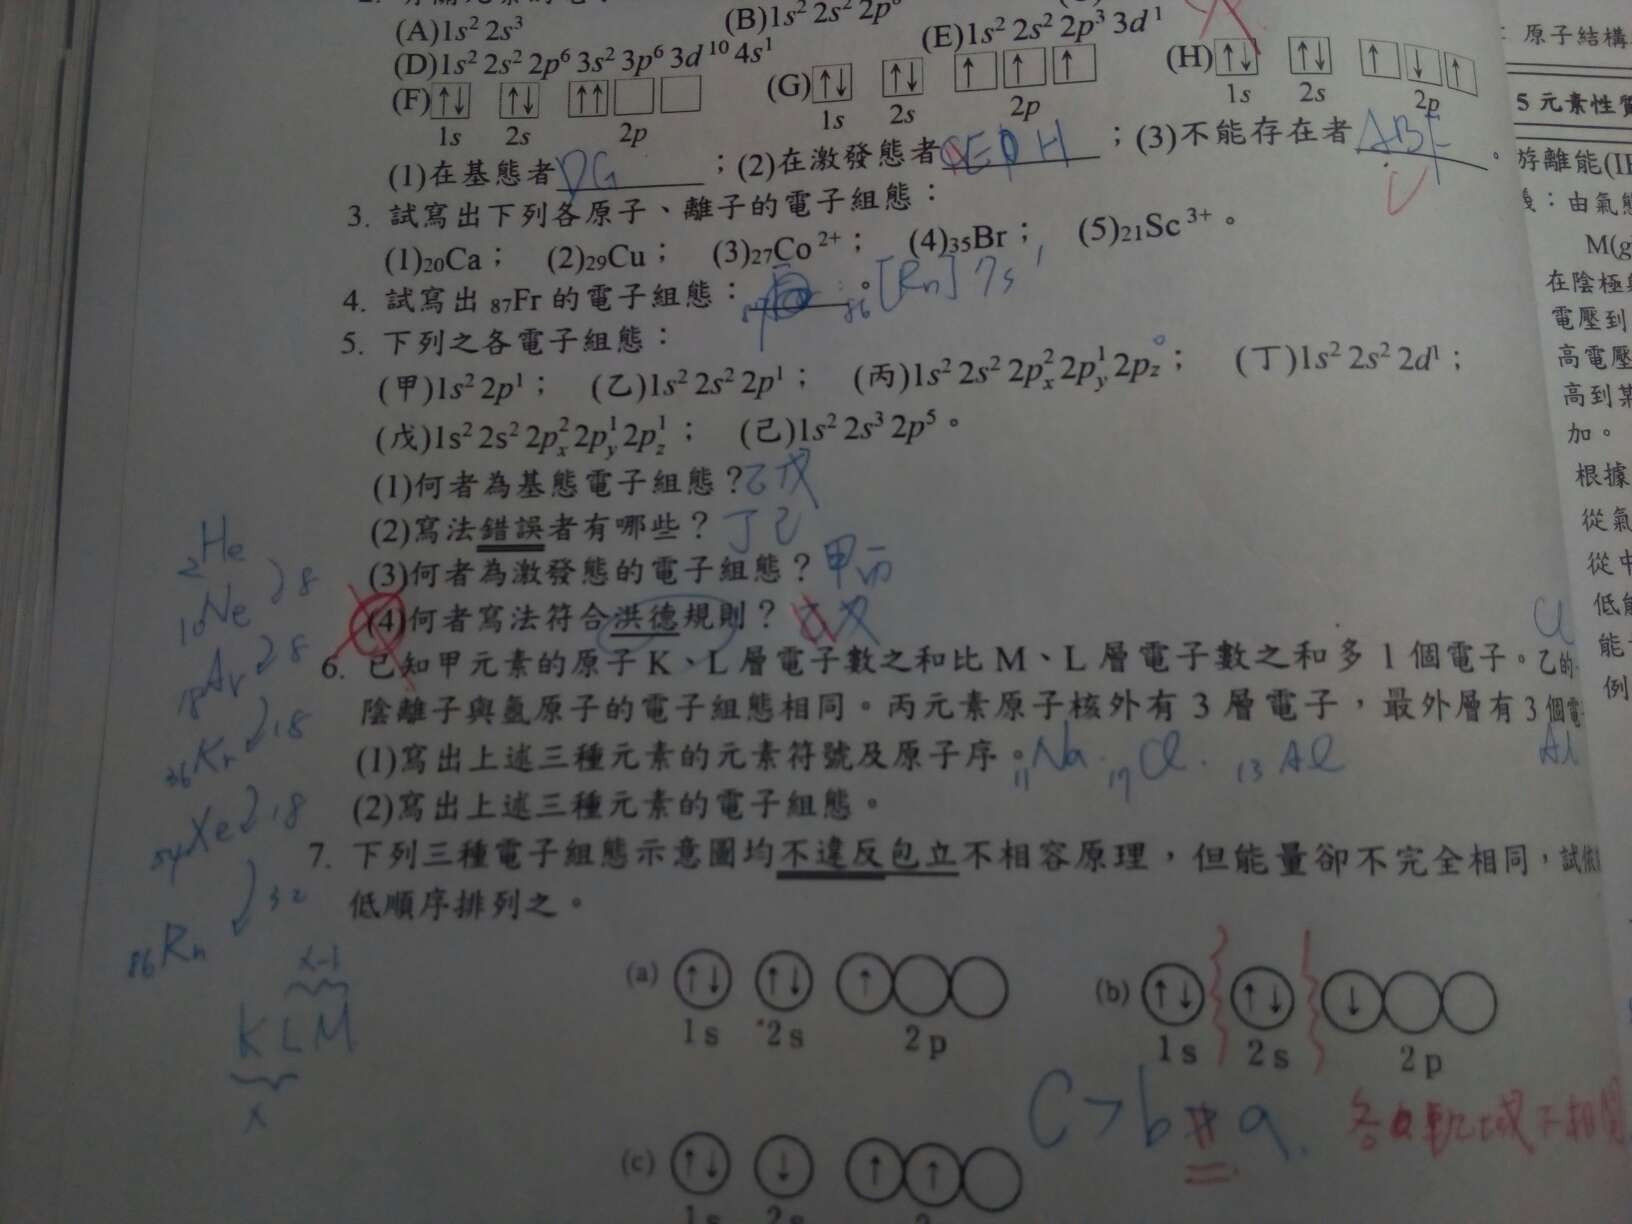 (A)1s² 2s³
(B)1s² 2s² 2p⁸
(D)1s² 2s² 2p⁶ 3s² 3p⁶ 3d¹⁰ 4s¹
(E)1s² 2s² 2p³ 3d¹
(F) ↑↓ ↑↓ ↑↑
1s 2s 2p
(G) ↑↓ ↑↓ ↑ ↑ ↑
1s 2s 2p
(H) ↑↓ ↑↓ ↑ ↓ ↑
1s 2s 2p
(1)在基態者 DG ；(2)在激發態者 E H ；(3)不能存在者 ABF 。
3. 試寫出下列各原子、離子的電子組態：
(1)₂₀Ca； (2)₂₉Cu； (3)₂₇Co²⁺； (4)₃₅Br； (5)₂₁Sc³⁺。
4. 試寫出 ₈₇Fr 的電子組態： 。 ₈₆[Rn] 7s¹
5. 下列之各電子組態：
(甲)1s² 2p¹； (乙)1s² 2s² 2p¹； (丙)1s² 2s² 2pₓ² 2p_y¹ 2p_z⁰； (丁)1s² 2s² 2d¹；
(戊)1s² 2s² 2pₓ² 2p_y¹ 2p_z¹； (己)1s² 2s³ 2p⁵。
(1)何者為基態電子組態？乙戊
(2)寫法錯誤者有哪些？ 丁己
(3)何者為激發態的電子組態？ 甲丙
(4)何者寫法符合洪德規則？
6. 已知甲元素的原子 K、L 層電子數之和比 M、L 層電子數之和多 1 個電子。乙的
陰離子與氬原子的電子組態相同。丙元素原子核外有 3 層電子，最外層有 3 個電
(1)寫出上述三種元素的元素符號及原子序。₁₁Na. ₁₇Cl. ₁₃Al
(2)寫出上述三種元素的電子組態。
7. 下列三種電子組態示意圖均不違反包立不相容原理，但能量卻不完全相同，試依
低順序排列之。
(a) ↑↓ ↑↓ ↑
1s 2s 2p
(b) ↑↓ ↑↓ ↓
1s 2s 2p
C > b = a.
(c) ↑↓ ↓ ↑ ↑
1s 2s
₂He
8
₁₀Ne
8
₁₈Ar
18
₃₆Kr
18
₅₄Xe
32
₈₆Rn
x-1
K L M
x
Cl
Al
原子結構
5 元素性質
游離能(IE
：由氣態
M(g
在陰極與
電壓到
高電壓
高到某
加。
根據
從氣
從中
低能
能
例